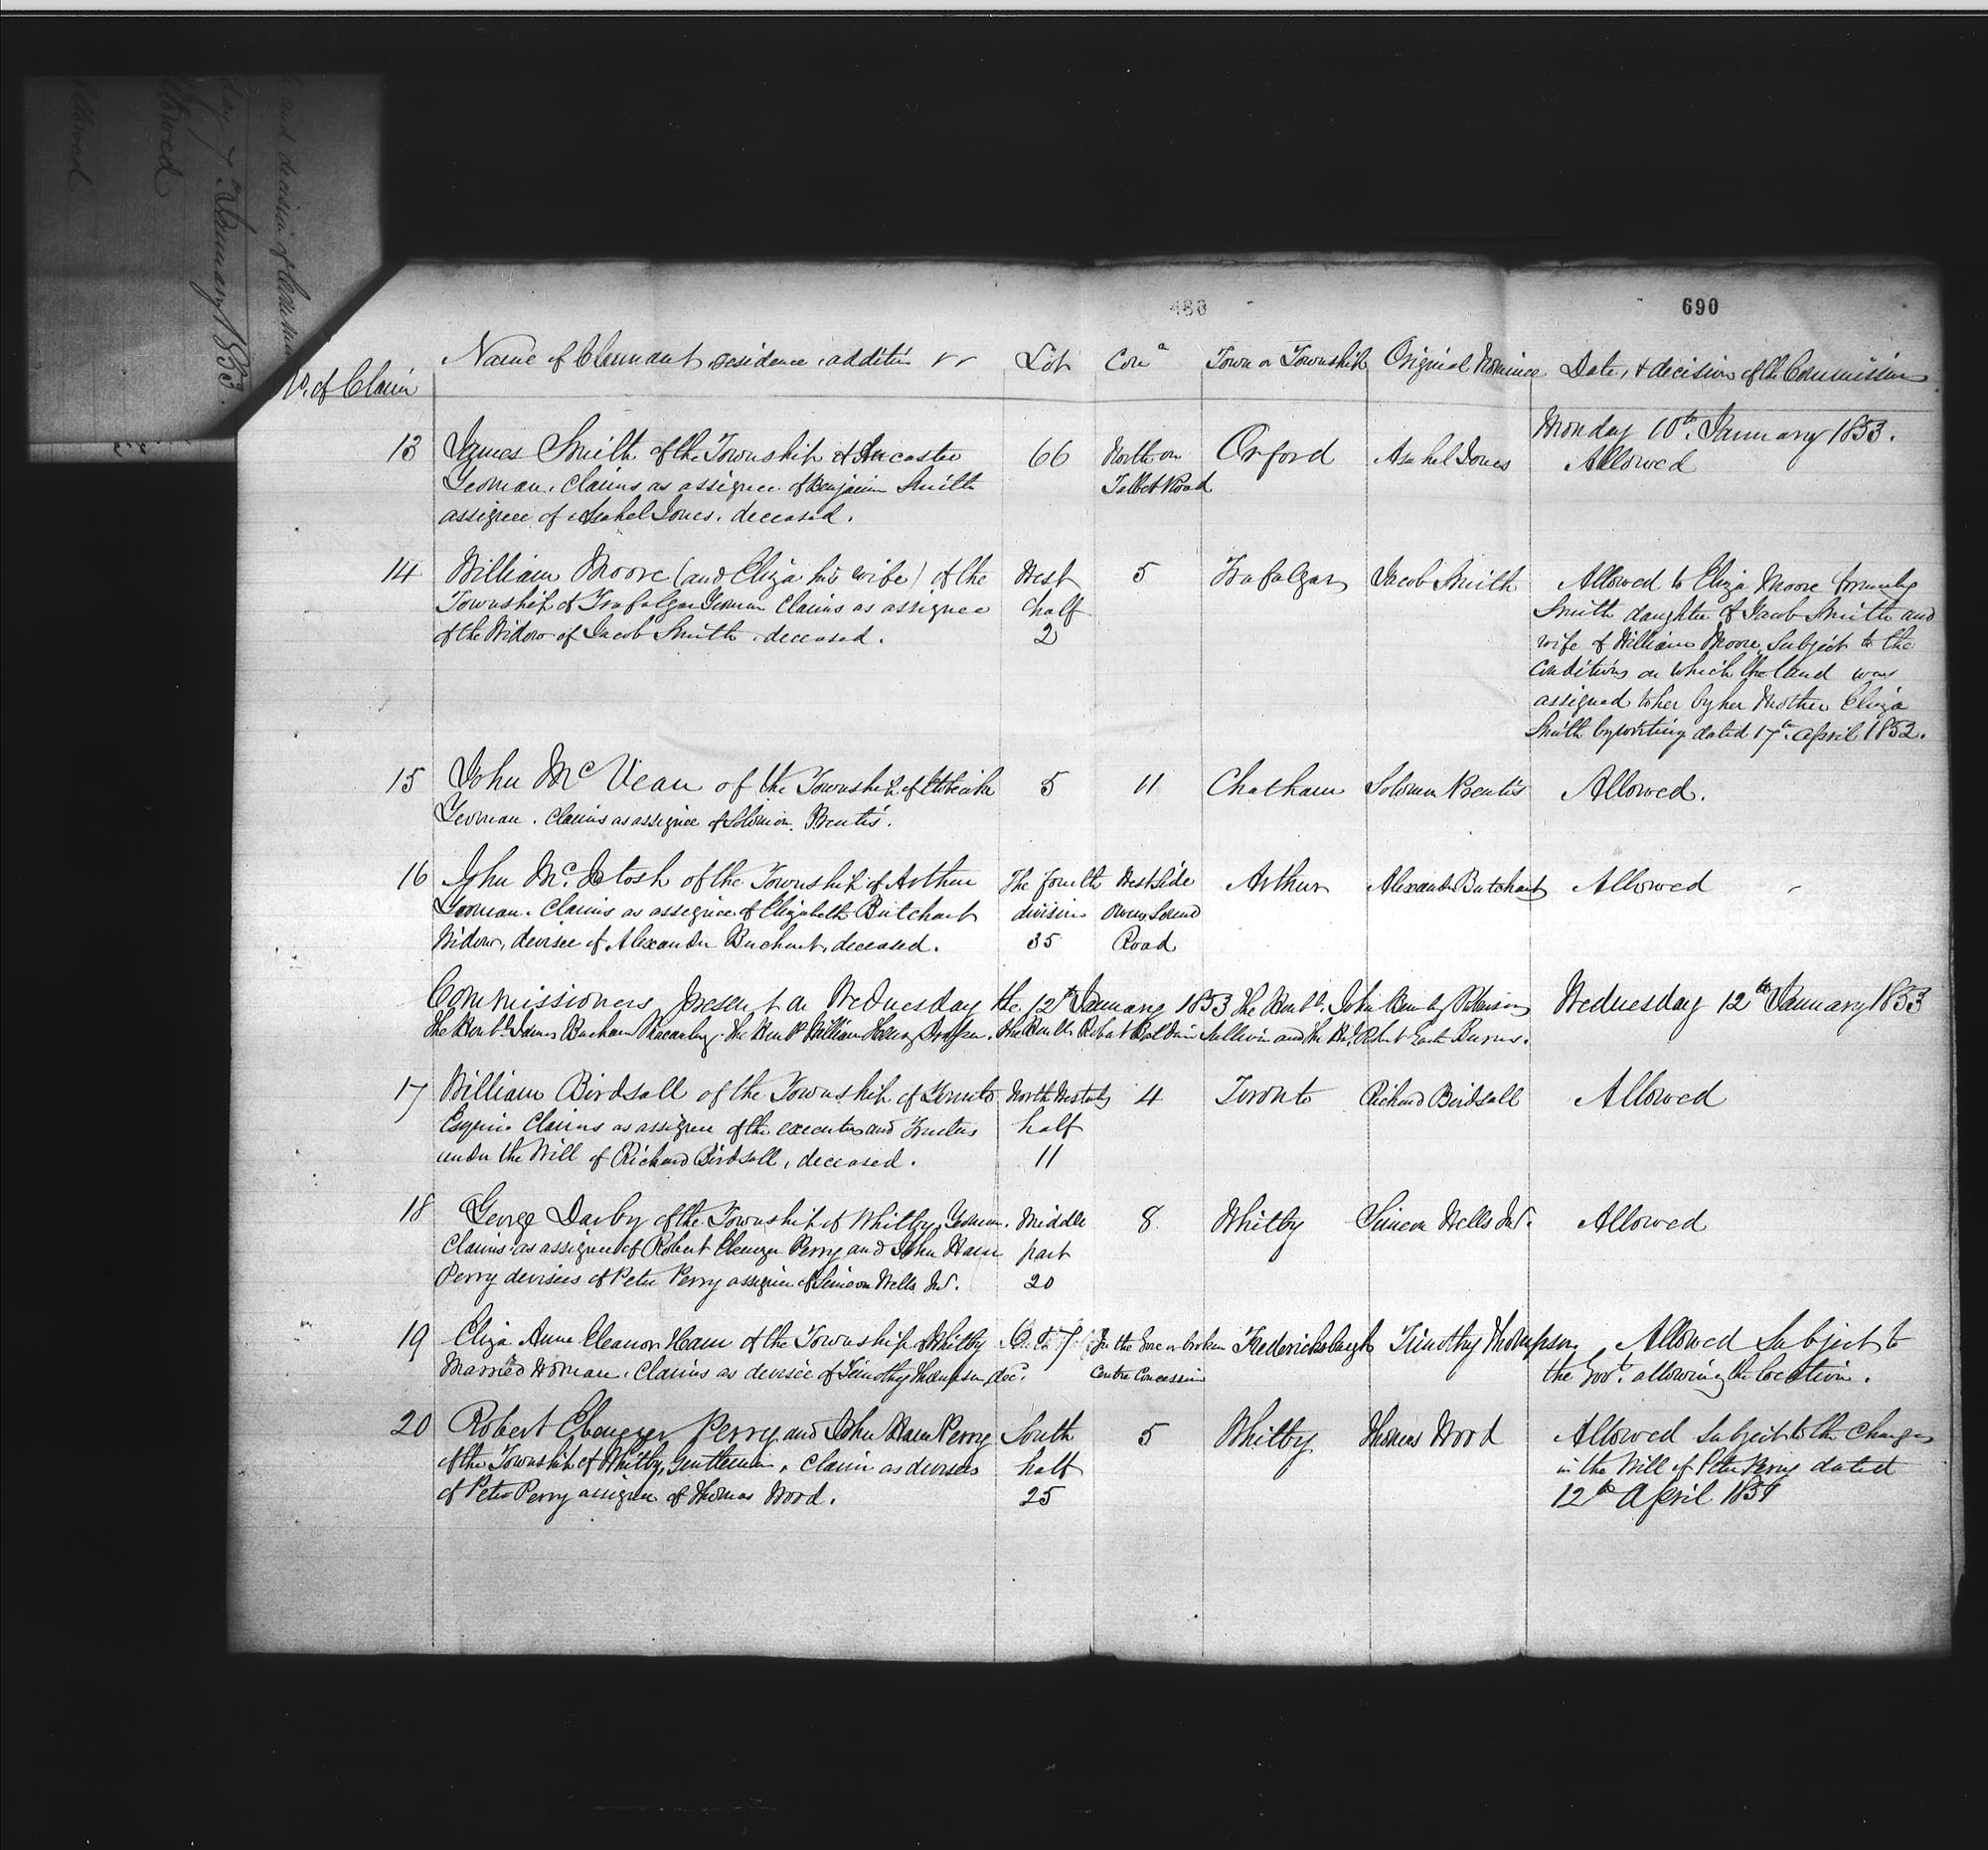 and decision of
January 1853.
llowed
llowed
480
690
No. of Claim
Name of Claimant residence, addition
Lot
Conn
Town or Township
Original Nominee
Date, & decision of the Commission
Monday 10th. January 1853.
13 James Smith of the Township of Ancaster 66 North on Orford Asahel Jones Allowed
Yeoman. Claims as assignee of Benjamin Smith Talbot Road
assignee of Asahel Jones. deceased.
14 William Moore (and Eliza his wife) of the West 5 Trafalgar Jacob Smith Allowed to Eliza Moore formerly
Township of Trafalgar Yeoman Claims as assignee half Smith daughter of Jacob Smith and
of the Widow of Jacob Smith. deceased. 2 wife of William Moore, Subject to the
conditions on which the land was
assigned to her by her Mother Eliza
Smith by writing dated 17th. April 1852.
15 John McVean of the Township of Etobicoke 5 11 Chatham Solomon Allowed.
Yeoman. Claims as assignee of Solomon
16 John McIntosh of the Township of Arthur The fourth West Side Arthur Alexander Butchart Allowed
Yeoman. Claims as assignee of Elizabeth Butchart division Owen Sound
Widow, devisee of Alexander Buchart, deceased. 35 Road
Commissioners present on Wednesday the 12th January 1853 The Honble. John Beverley Robinson Wednesday 12th January 1853
The Honble James Buchanan Macaulay. The Honble William Henry Draper. The Honble Robert Baldwin Sullivan and The Hon. Robert Easton Burns.
17 William Birdsall of the Township of Toronto North Westerly 4 Toronto Richard Birdsall Allowed
Esquire Claims as assignee of the executors and Trustees half
under the Will of Richard Birdsall, deceased. 11
18 George Darby of the Township of Whitby, Yeoman. Middle 8 Whitby Simeon Wells Jnr. Allowed
Claims as assignee of Robert Ebenezer Perry and John Ham part
Perry devisees of Peter Perry assignee of Simeon Wells Jnr. 20
19 Eliza Anne Eleanor Ham of the Township of Whitby In the Gore or broken Fredericksburgh Timothy Thompson Allowed Subject to
Married Woman. Claims as devisee of Timothy Thompson, dec. Centre Concession the Govt. allowing the location.
20 Robert Ebenezer Perry and John Ham Perry South 5 Whitby Thomas Wood Allowed Subject to the charges
of the Township of Whitby, Gentlemen. Claim as devisees half in the Will of Peter Perry dated
of Peter Perry assignee of Thomas Wood. 25 12th April 1851